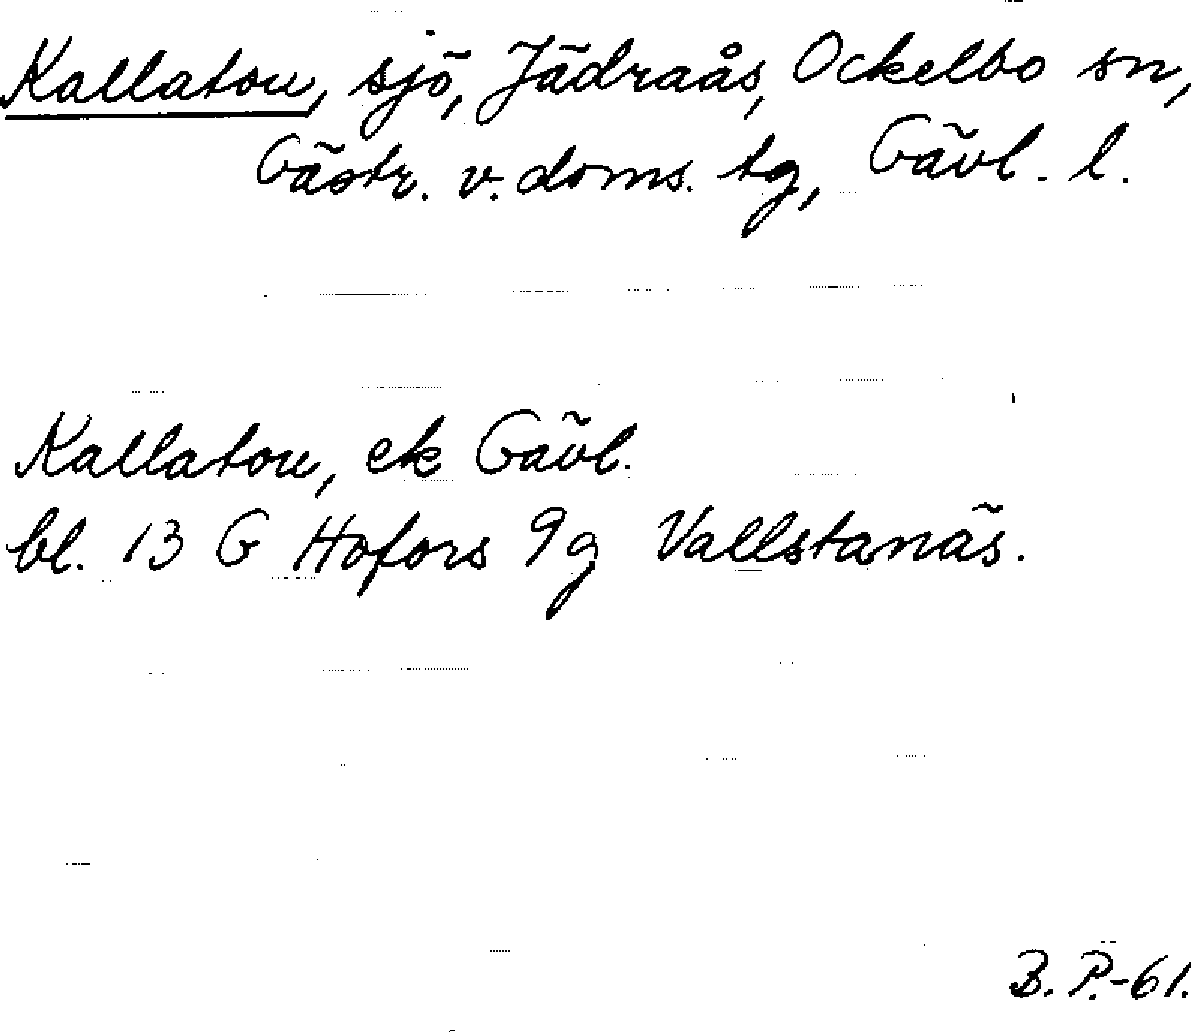 Kallaton, sjö, Jädraås, Ockelbo sn,
Gästr. v. doms. tg, Gävl. l.
Kallaton, ek Gävl.
bl. 13 G Hofors 9g Vallstanäs.
B. P.-61.